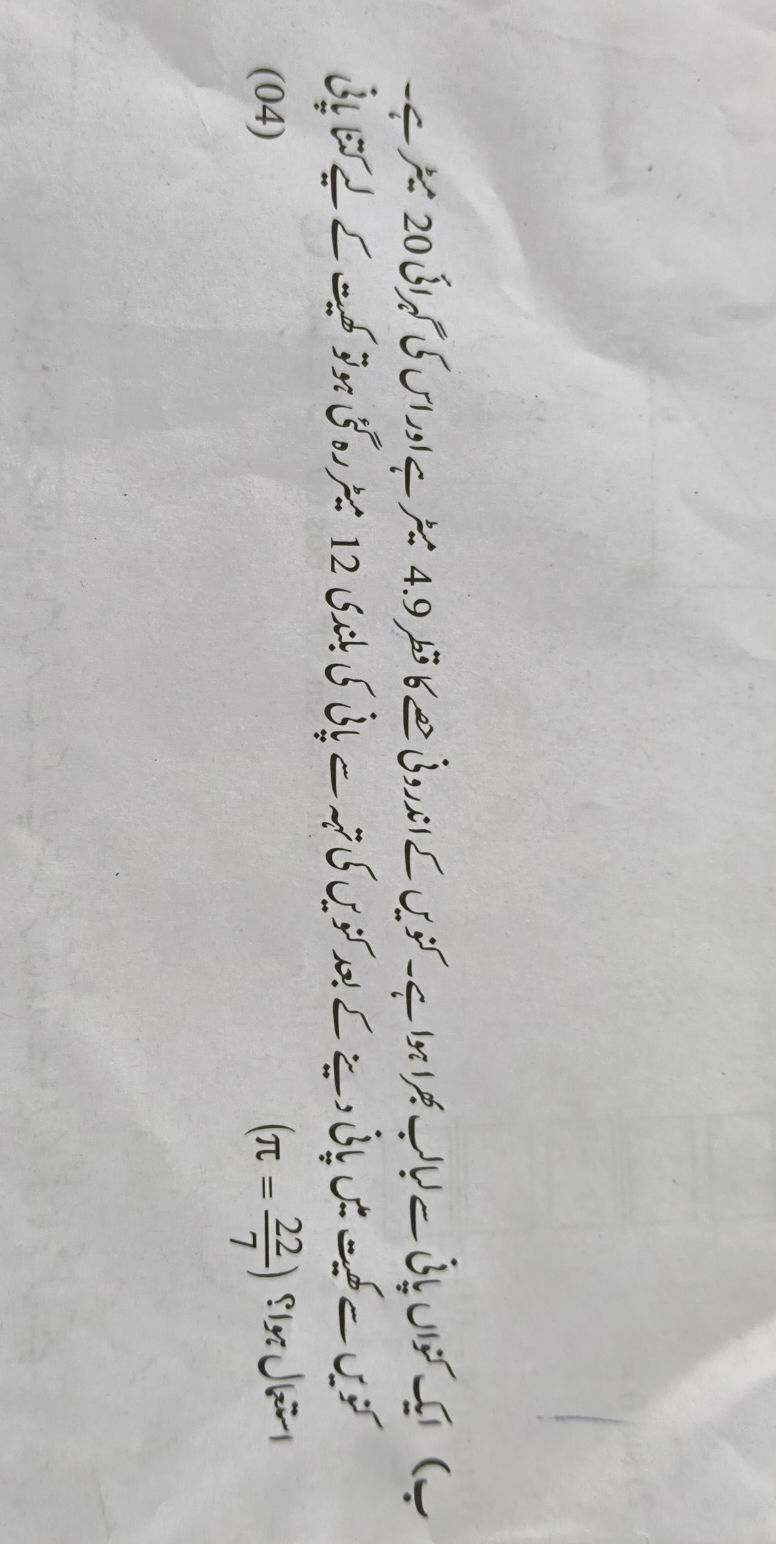 ب) ایک کنواں پانی سے لبالب بھرا ہوا ہے۔ کنویں کے اندرونی حصے کا قطر 4.9 میٹر ہے اور اس کی گہرائی 20 میٹر ہے۔
کنویں سے کھیت میں پانی دینے کے بعد کنویں کی تہہ سے پانی کی بلندی 12 میٹر رہ گئی ہو تو کھیت کے لیے کتنا پانی
استعمال ہوا؟ (π = 22/7) (04)